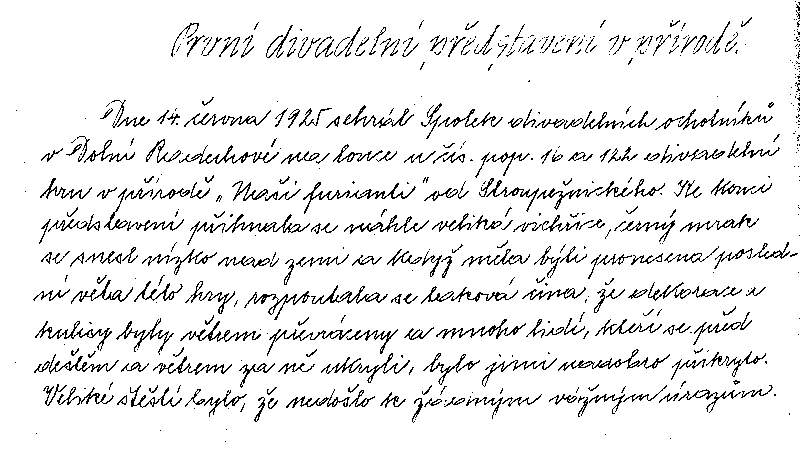 První divadelní představení v přírodě.
Dne 14. června 1925 sehrál Spolek divadelních ochotníků
v Dolní Radechové na louce u čís. pop. 16 a 122 divadelní
hru v přírodě „Naši furianti" od Stroupežnického. Ke konci
představení přihnala se náhle veliká vichřice, černý mrak
se snesl nízko nad zemi a když měla býti pronesena posled-
ní věta této hry, rozpoutala se taková čina, že dekorace a
kulisy byly větrem převráceny a mnoho lidí, kteří se před
deštěm a větrem za ně ukryli, bylo jimi nadobro přikryto.
Veliké štěstí bylo, že nedošlo k žádným vážným úrazům.